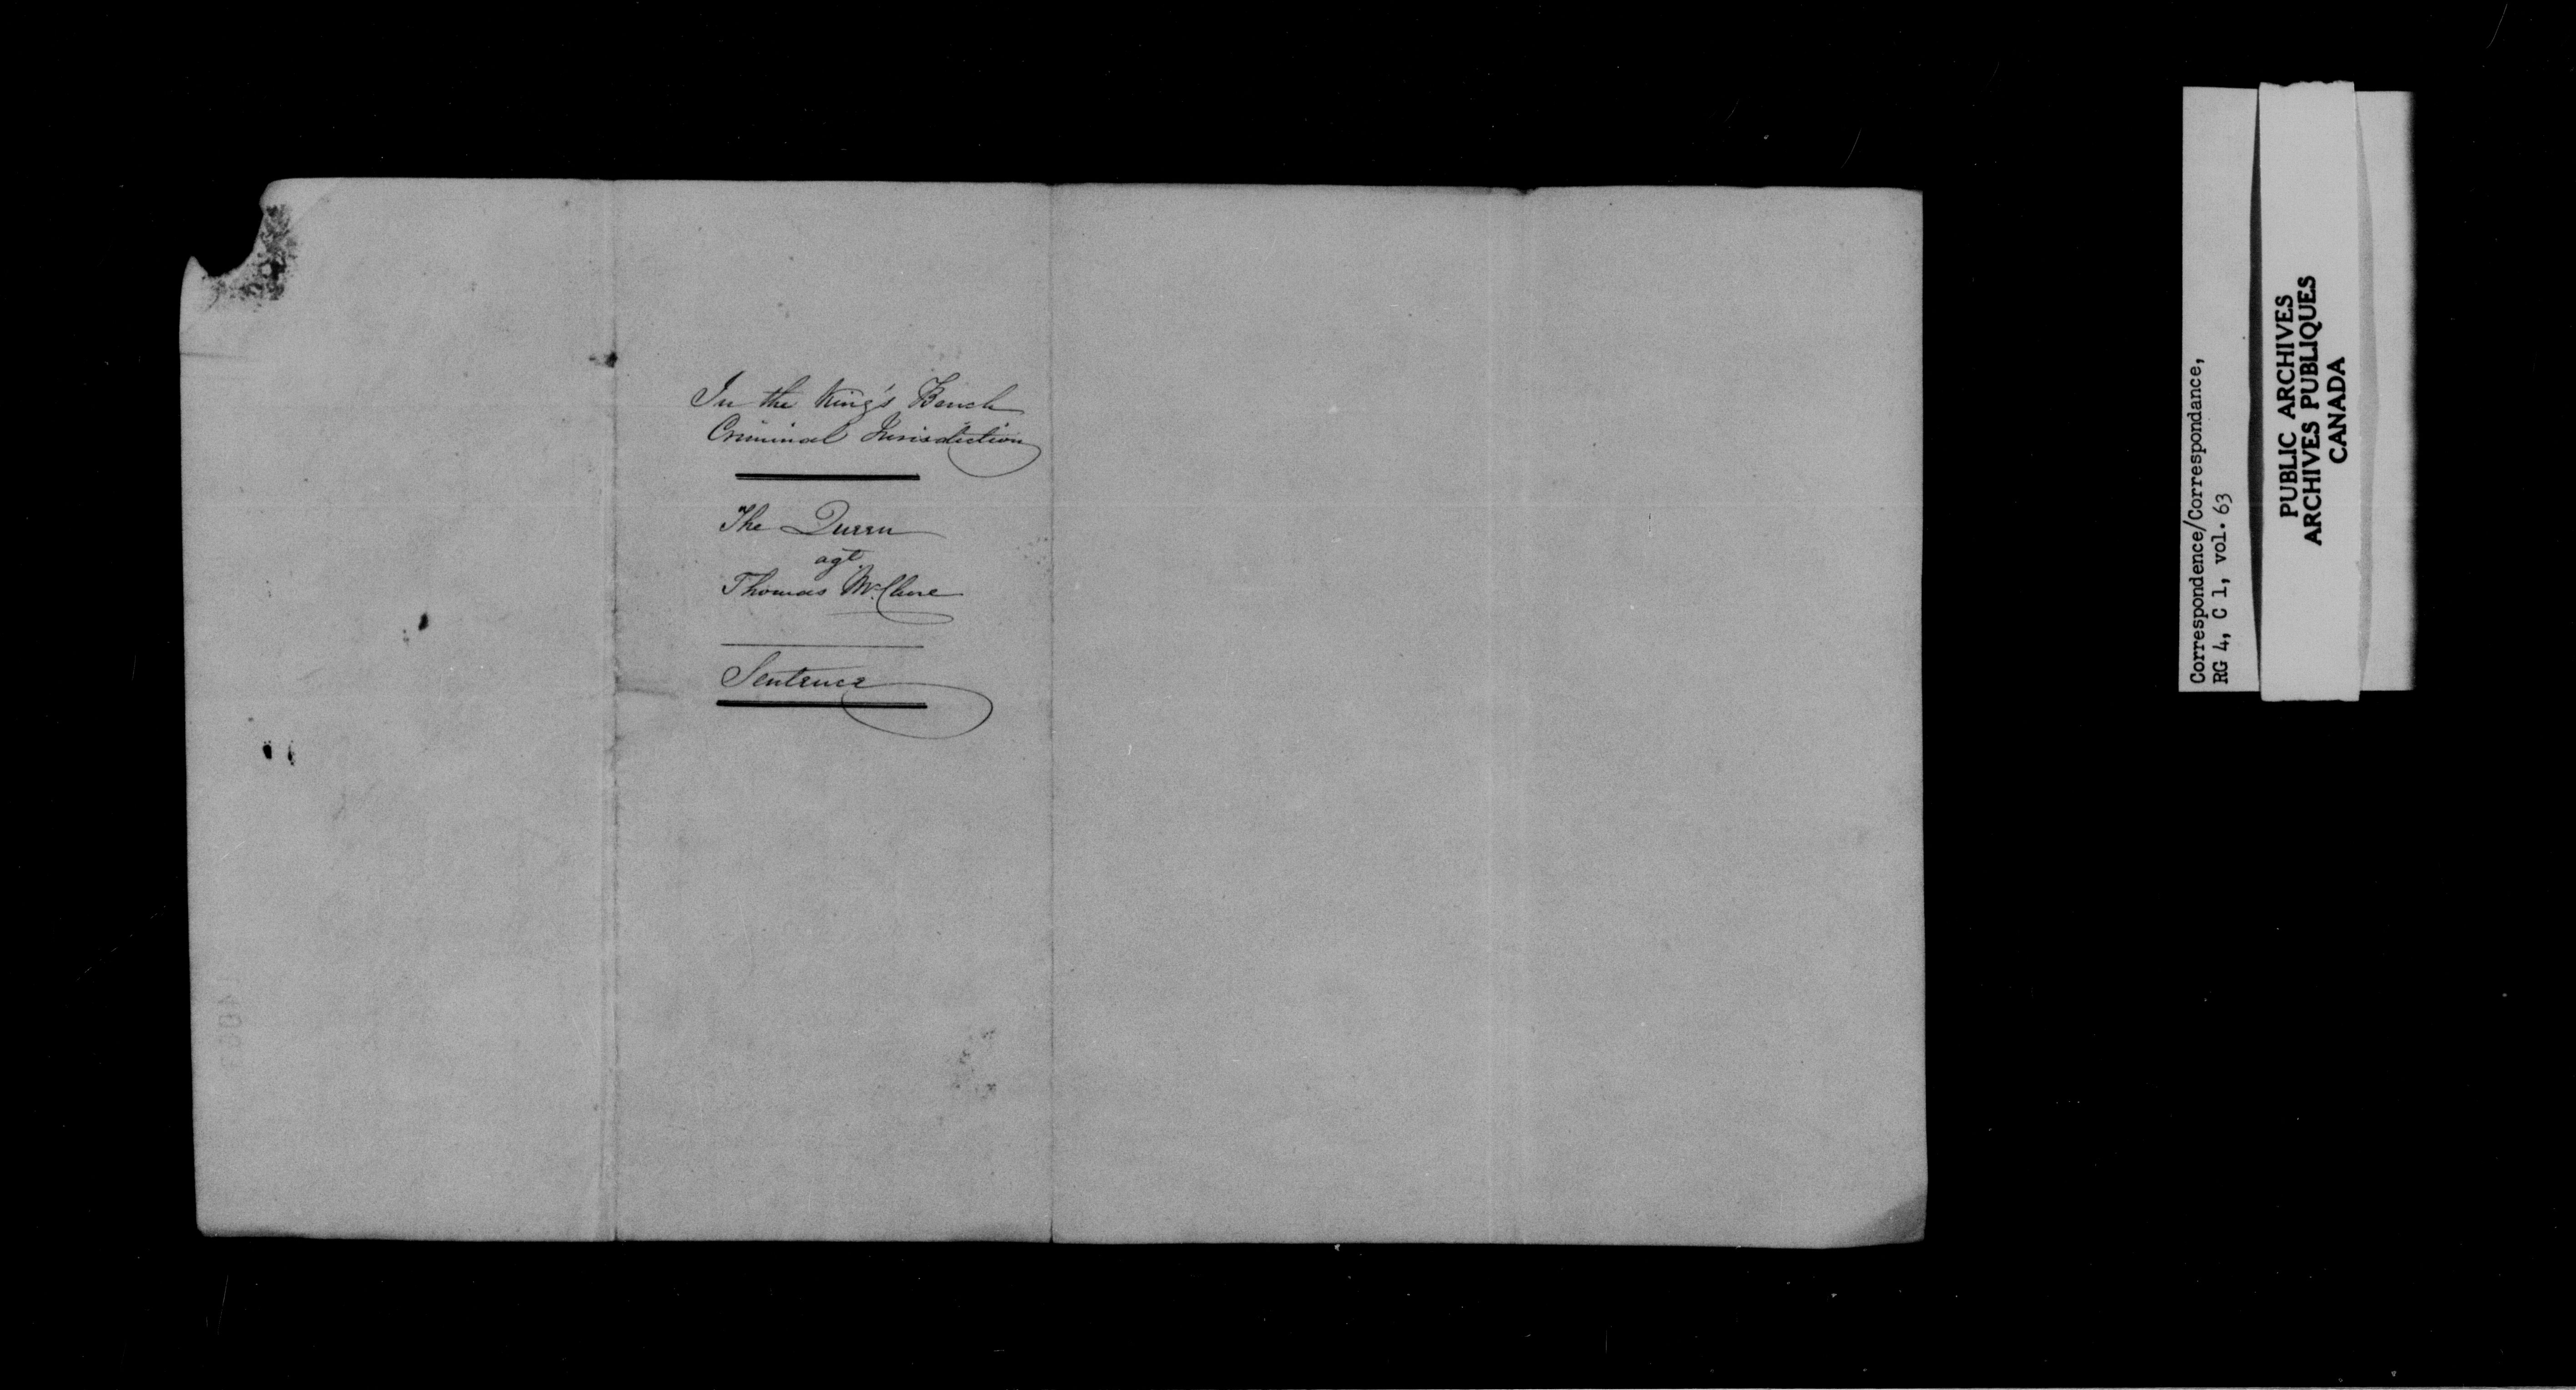 In the King's Bench
Criminal Jurisdiction
The Queen
agt
Thomas McClure
Sentence
Correspondence/Correspondance,
RG 4, C 1, vol. 63
PUBLIC ARCHIVES
ARCHIVES PUBLIQUES
CANADA